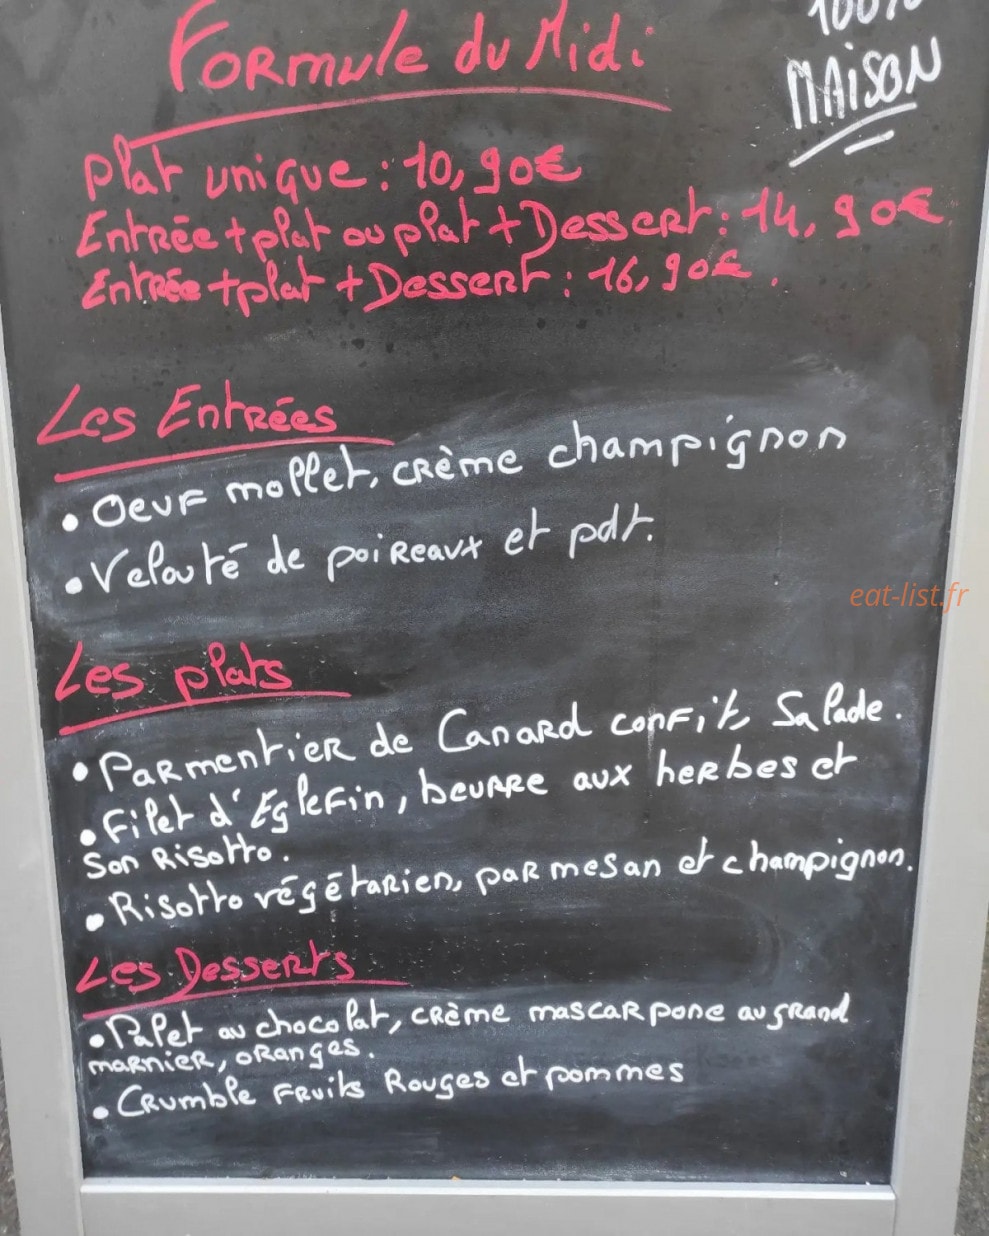 Formule du Midi
100%
MAISON
plat unique : 10,90€
Entrée + plat ou plat + Dessert : 14,90€.
Entrée + plat + Dessert : 16,90€.
Les Entrées
• Oeuf mollet, crème champignon
• Velouté de poireaux et pdt.
eat-list.fr
Les plats
• Parmentier de Canard confit, Salade.
• Filet d'Eglefin, beurre aux herbes et
Son Risotto.
• Risotto végétarien, parmesan et champignon.
Les Desserts
• Palet au chocolat, crème mascarpone au grand
marnier, oranges.
• Crumble Fruits Rouges et pommes